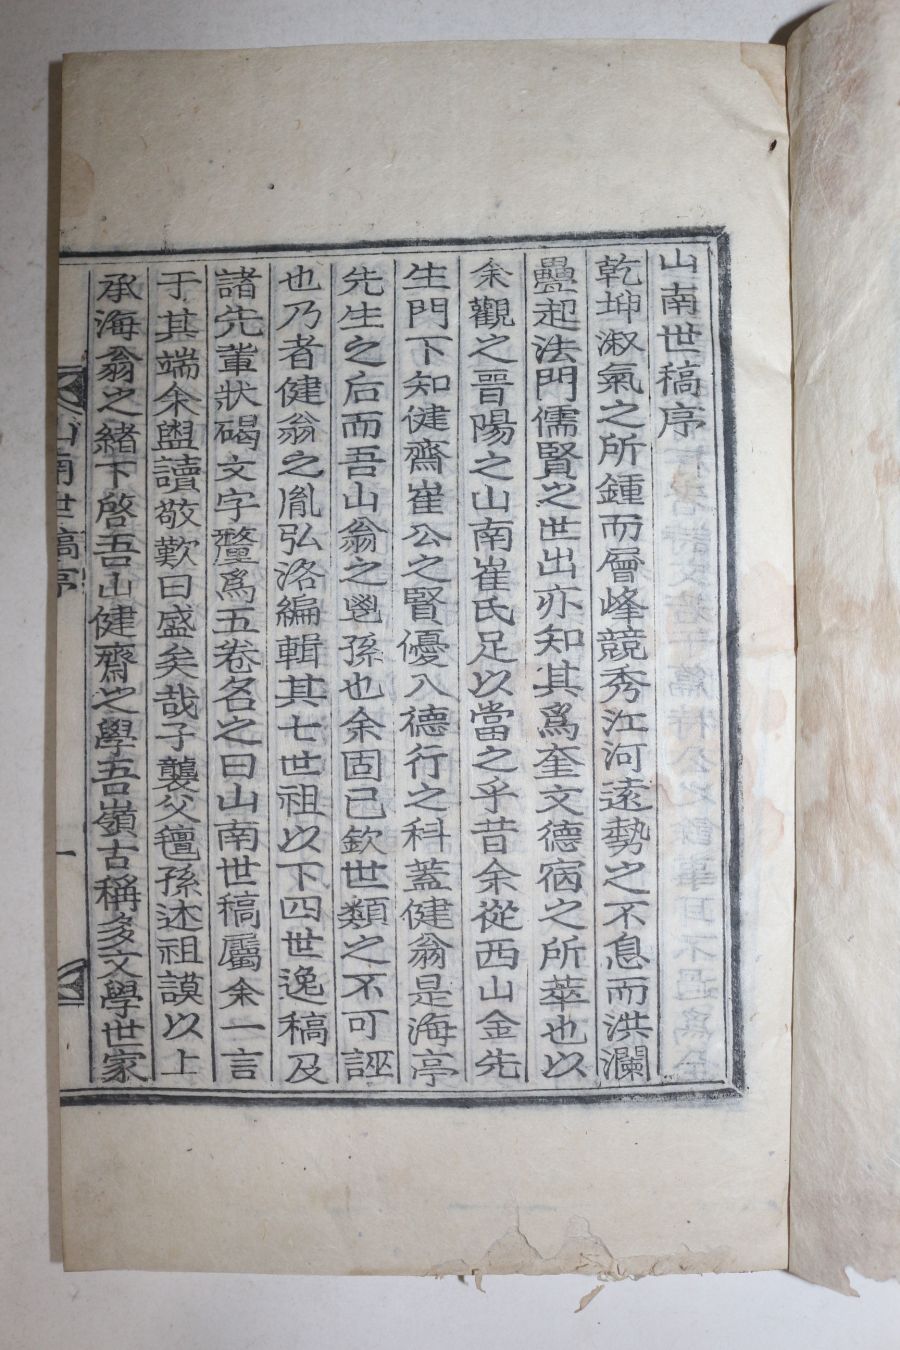 山南世稿序
乾坤淑氣之所鍾而層峰競秀江河遠勢之不息而洪瀾
疊起法門儒賢之世出亦知其爲奎文德宿之所萃也以
余觀之晋陽之山南崔氏足以當之乎昔余從西山金先
生門下知健齋崔公之賢優入德行之科蓋健翁是海亭
先生之后而吾山翁之孫也余固已欽世類之不可誣
也乃者健翁之胤弘洛編輯其七世祖以下四世逸稿及
諸先輩狀碣文字釐爲五卷名之曰山南世稿屬余一言
于其端余盥讀敬歎曰盛矣哉子襲父氊孫述祖謨以上
承海翁之緖下啓吾山健齋之學吾嶺古稱多文學世家
山南世稿序
一